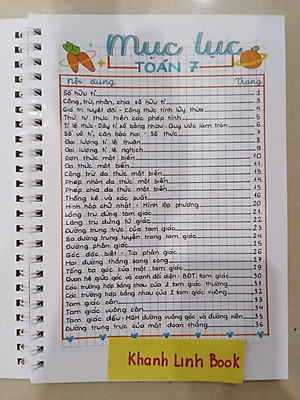 Mục lục
TOÁN 7
Nội dung Trang
Số hữu tỉ 1
Cộng, trừ, nhân, chia số hữu tỉ 3
Giá trị tuyệt đối - Công thức tính lũy thừa 4
Thứ tự thực hiện các phép tính 5
Tỉ lệ thức - Dãy tỉ số bằng nhau - Quy ước làm tròn 6
Số vô tỉ, căn bậc hai - Số thực 7
Đại lượng tỉ lệ thuận 8
Đại lượng tỉ lệ nghịch 9
Đơn thức một biến 10
Đa thức một biến 11
Cộng trừ đa thức một biến 13
Phép nhân đa thức một biến 14
Phép chia đa thức một biến 15
Thống kê và xác suất 16
Hình hộp chữ nhật - Hình lập phương 20
Lăng trụ đứng tam giác 21
Lăng trụ đứng tứ giác 22
Đường trung trực của tam giác 23
Ba đường trung tuyến trong tam giác 24
Đường phân giác 25
Góc đặc biệt - Tia phân giác 26
Hai đường thẳng song song 27
Tổng ba góc của một tam giác 29
Quan hệ giữa góc và cạnh đối diện - BĐT tam giác 30
Các trường hợp bằng nhau của 2 tam giác thường 31
Các trường hợp bằng nhau của 2 tam giác vuông 32
Tam giác cân 33
Tam giác vuông cân 34
Tam giác đều - MQH đường vuông góc và đường xiên 35
Đường trung trực của một đoạn thẳng 36
Khánh Linh Book